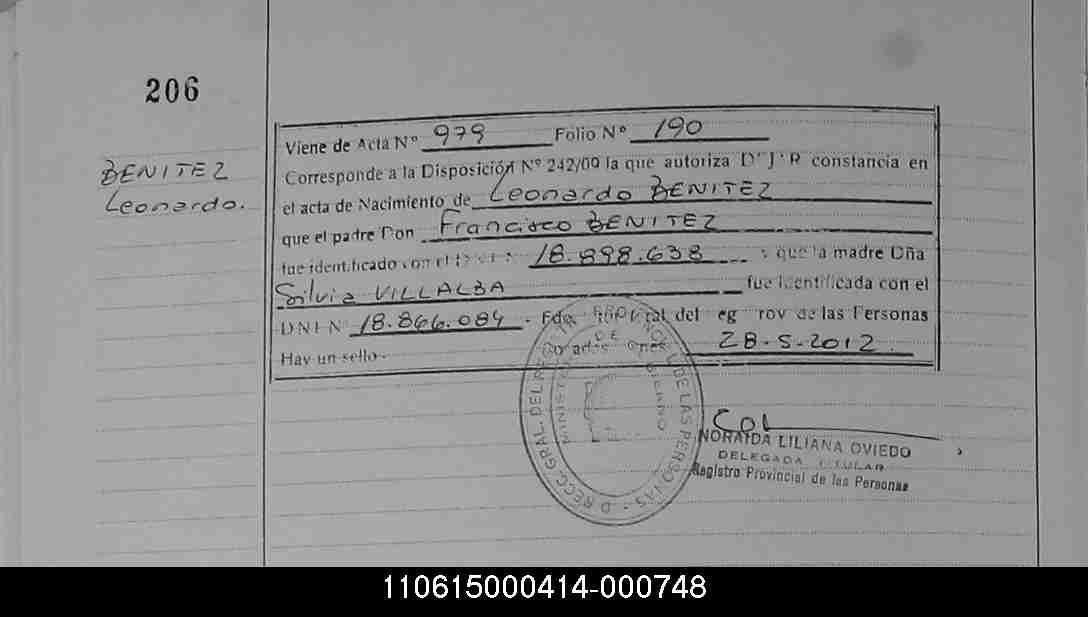 206
BENITEZ
Leonardo.
Viene de Acta Nº 979 Folio Nº 190
Corresponde a la Disposición Nº 242/00 la que autoriza D' J' R constancia en
el acta de Nacimiento de Leonardo BENITEZ
que el padre Don Francisco BENITEZ
fue identificado con el 18.898.638 y que la madre Dña
Silvia VILLALBA fue identificada con el
DNI N 18.866.084 - Fdo. del reg rov de las Personas
Hay un sello - 28-5-2012
NORAIDA LILIANA OVIEDO
DELEGADA TITULAR
Registro Provincial de las Personas
110615000414-000748